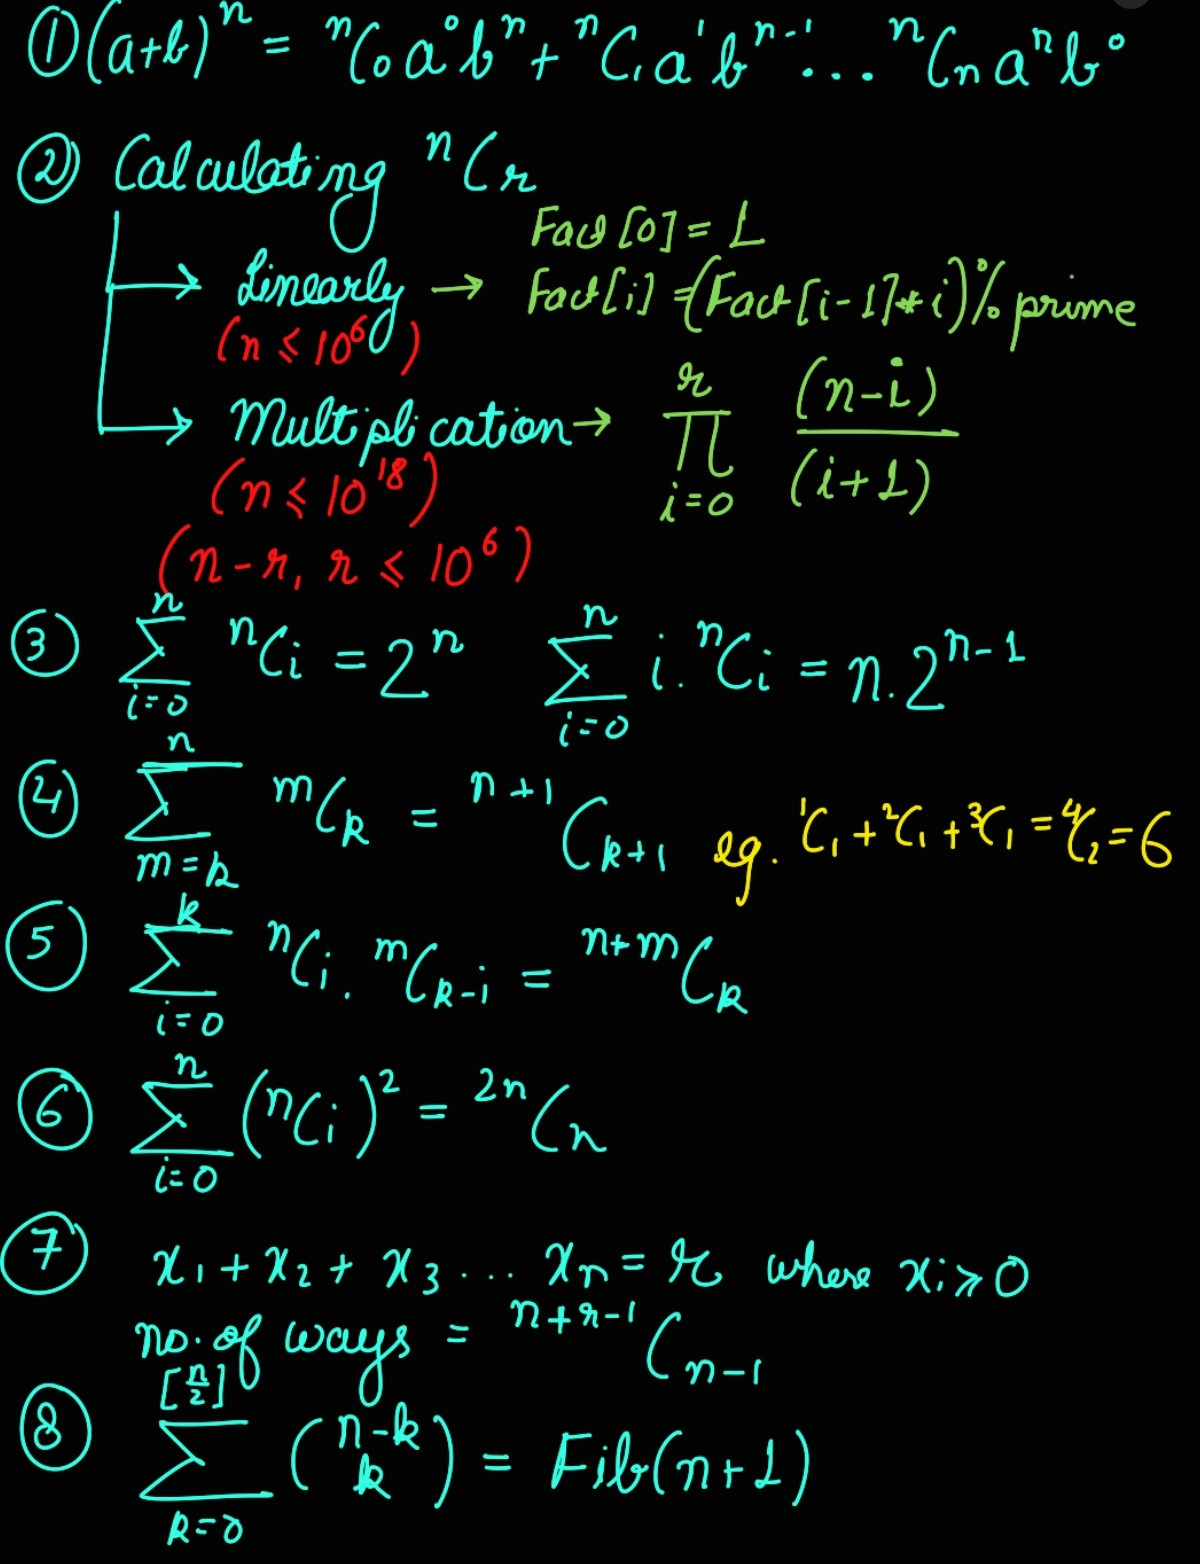 ① (a+b)ⁿ = ⁿC₀a⁰bⁿ + ⁿC₁a¹bⁿ⁻¹ ... ⁿCₙaⁿb⁰
② Calculating ⁿCᵣ
Fact[0] = 1
→ Linearly → Fact[i] = (Fact[i-1]*i)% prime
(n ≤ 10⁶)
→ Multiplication → ∏_{i=0}^{r} (n-i)/(i+1)
(n ≤ 10¹⁸)
(n-r, r ≤ 10⁶)
③ ∑_{i=0}^{n} ⁿCᵢ = 2ⁿ ∑_{i=0}^{n} i.ⁿCᵢ = n.2ⁿ⁻¹
④ ∑_{m=k}^{n} ᵐCₖ = ⁿ⁺¹Cₖ₊₁ eg. ¹C₁ + ²C₁ + ³C₁ = ⁴C₂ = 6
⑤ ∑_{i=0}^{k} ⁿCᵢ . ᵐCₖ₋ᵢ = ⁿ⁺ᵐCₖ
⑥ ∑_{i=0}^{n} (ⁿCᵢ)² = ²ⁿCₙ
⑦ x₁ + x₂ + x₃ ... xₙ = r where xᵢ ≥ 0
no. of ways = ⁿ⁺ʳ⁻¹Cₙ₋₁
⑧ ∑_{k=0}^{[n/2]} (n-k k) = Fib(n+1)